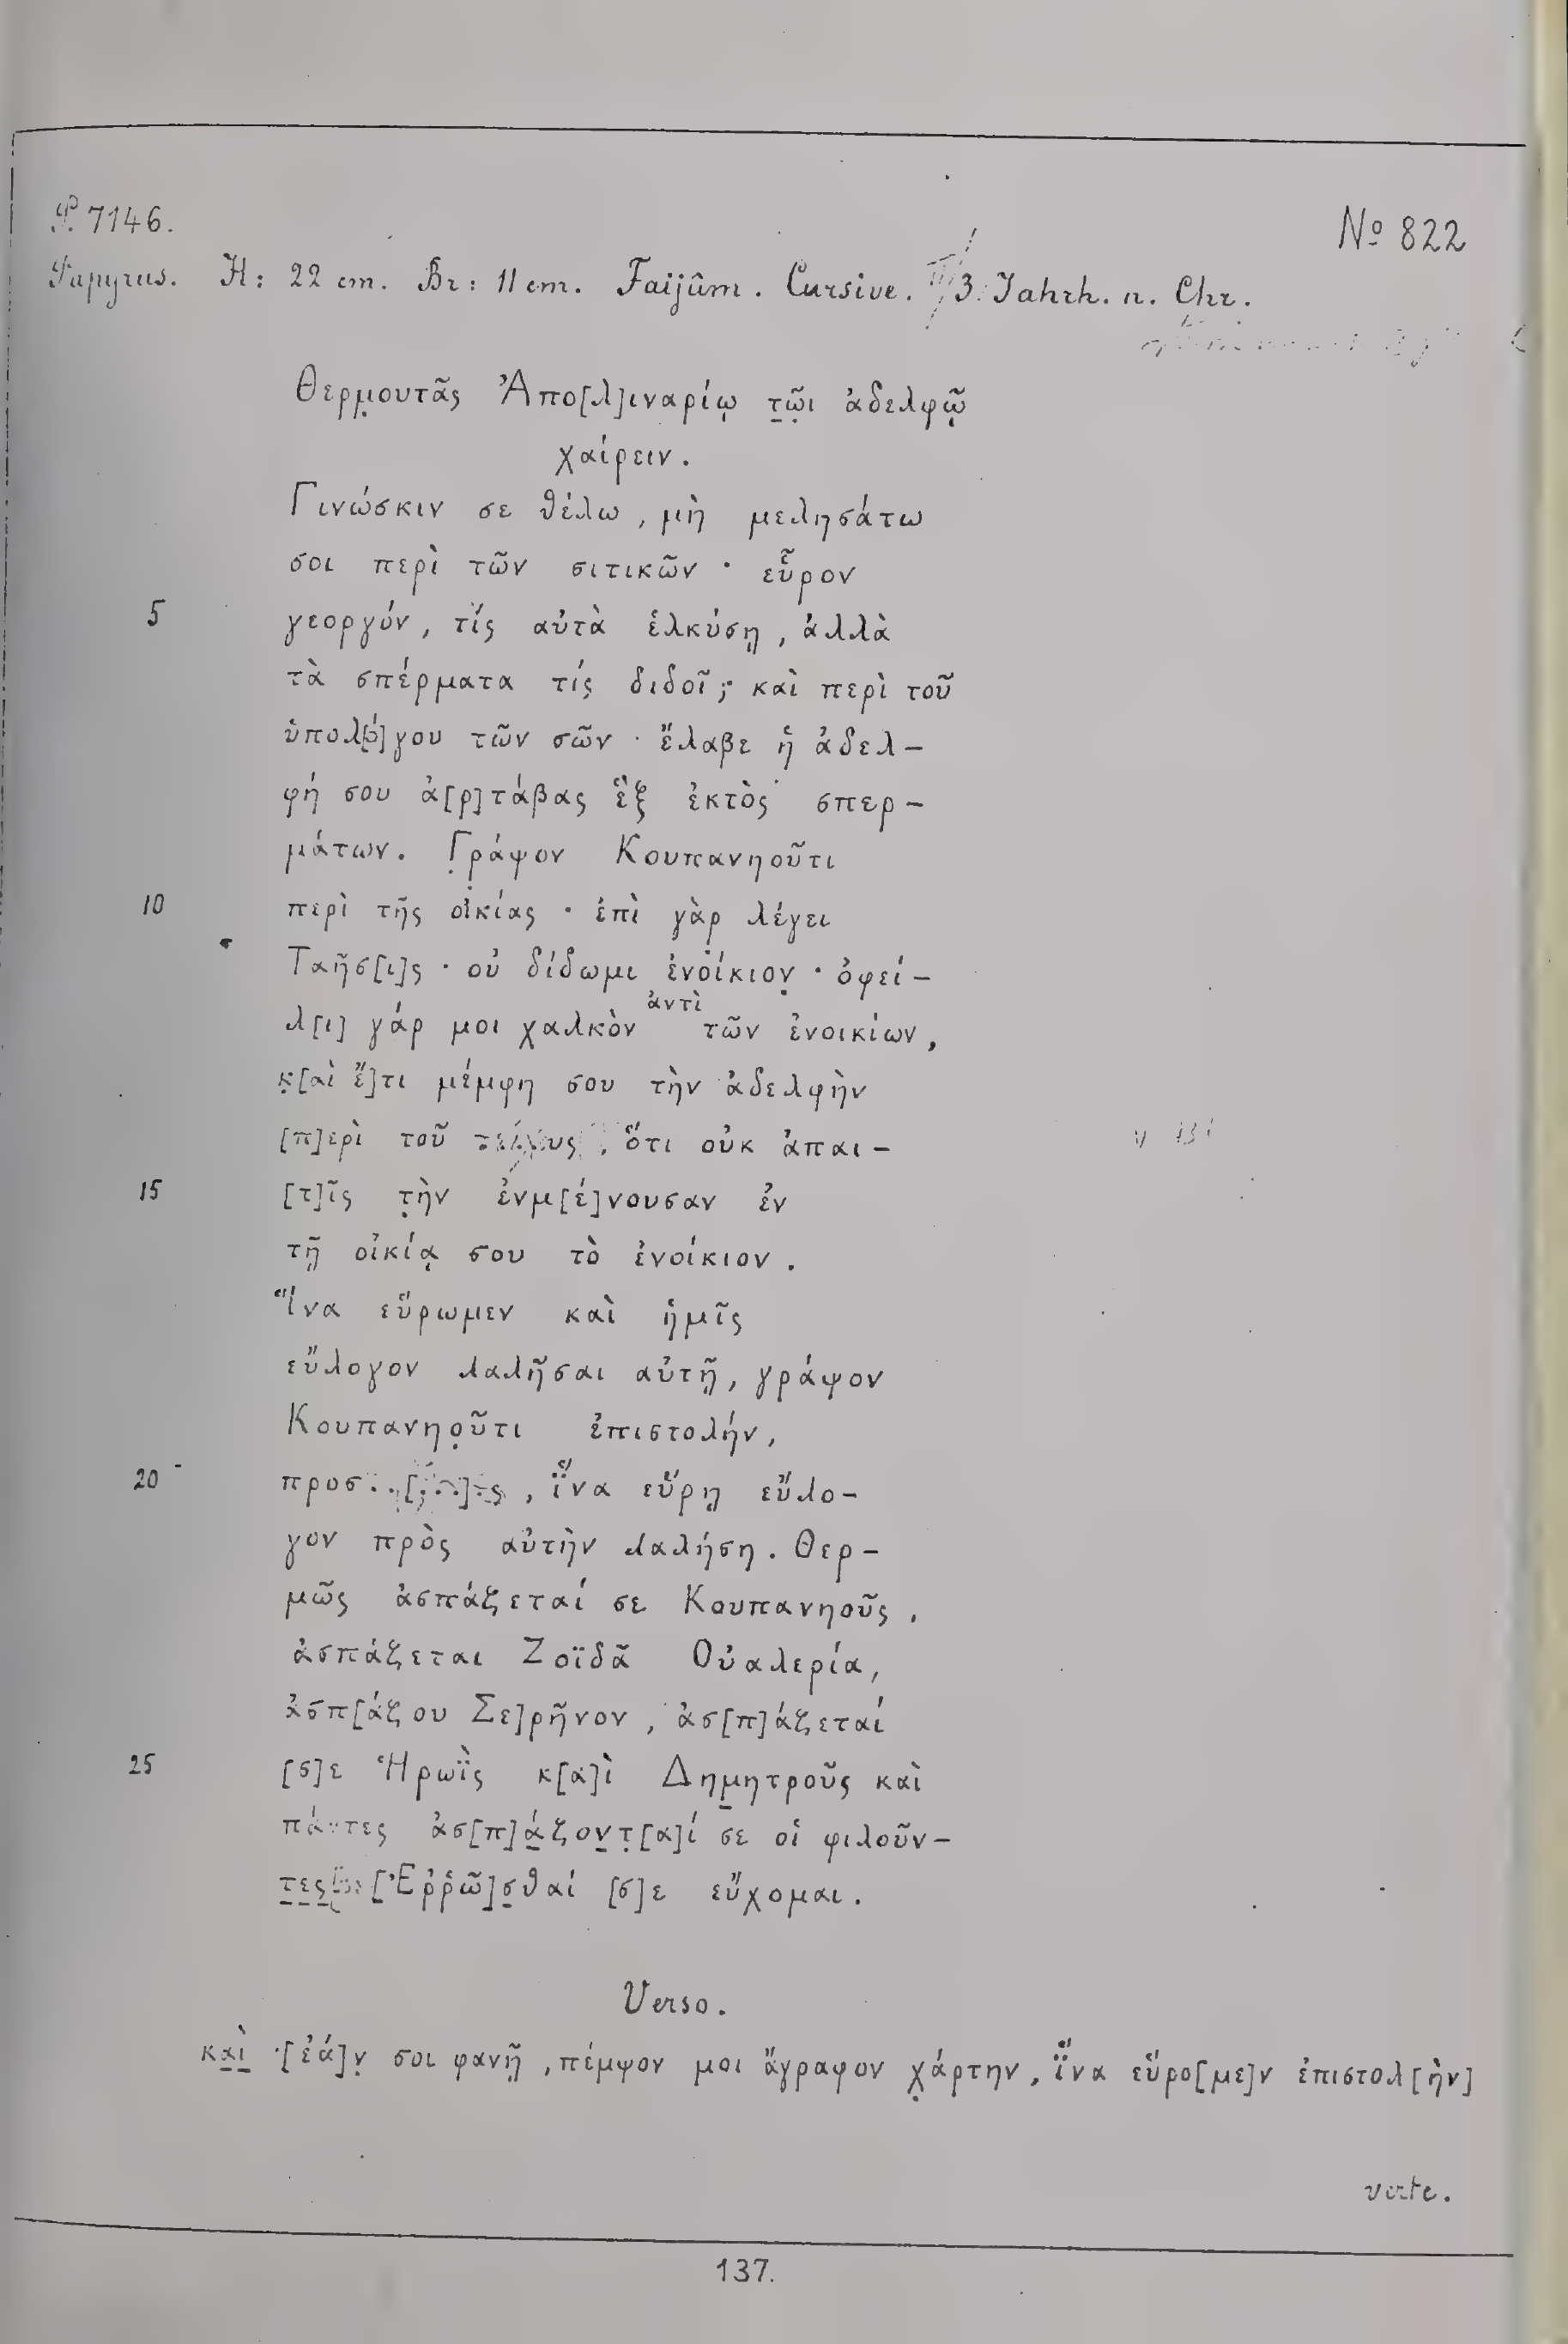 P. 7146.
No 822
Papyrus. H: 22 cm. Br: 11 cm. Faijûm. Cursive. II/3. Jahrh. n. Chr.
Θερμ̣ουτᾶς Ἀπο[λ]ιναρίῳ τ̲ῶ̣ι ἀδελφῷ
χαίρειν.
Γινώσκιν σε θέλω, μὴ μελησάτω
σοι περὶ τῶν σιτικῶν · εὗρον
5 γεοργόν, τίς αὐτὰ ἑλκύσῃ, ἀλλὰ
τὰ σπέρματα τίς διδοῖ; καὶ περὶ τοῦ
ὑπολ[ό]γου τῶν σῶν · ἔλαβε ἡ ἀδελ-
φή σου ἀ[ρ]τάβας ἓξ ἐκτὸς σπερ-
μάτων. Γ̣ρ̣άψον Κουπανηοῦτι
10 περὶ τῆς οἰ̣κίας · ἐπὶ γὰρ λέγει
Ταῆσ[ι]ς · οὐ δίδωμι ἐνοίκιον̣ · ὀφεί-
λ[ι] γάρ μοι χαλκὸν ἀντὶ τῶν ἐνοικίων,
κ̣[αὶ ἔ]τι μέμφη σου τὴν ἀδελφὴν
[π]ερὶ τοῦ , ὅτι οὐκ ἀπαι-
15 [τ]ῖς τ̣ὴν ἐνμ[έ]νουσαν ἐν
τῇ οἰκίᾳ σου τὸ ἐνοίκιον.
Ἵνα εὕρωμεν καὶ ἡμῖς
εὔλογον λαλῆσαι αὐτῇ, γράψον
Κουπανηο̣ῦτι ἐπιστολήν,
20 προσ , ἵ̈να εὕρῃ εὔλο-
γον πρὸς αὐτὴν λαλήση. Θερ-
μῶς ἀσπάζεταί σε Κουπανηοῦς,
ἀσπάζεται Ζοϊδᾶ Οὐαλερία,
ἀσπ[άζου Σε]ρῆνον, ἀσ[π]άζεταί
25 [σ]ε Ἡρωῒς κ[α]ὶ Δημ̲ητροῦς καὶ
πάντες ἀσ[π]ά̲ζον̲τ̣[α]ί σε οἱ φιλοῦν-
τ̲ε̲ς̲ [Ἐῤῥῶ]σ̲θαί [σ]ε εὔχομαι.
Verso.
κα̲ὶ̲ [ἐά]ν̣ σοι φανῇ, πέμψον μοι ἄγραφον χ̣άρτην, ἵ̈να εὕρο[με]ν ἐπιστολ[ὴν]
verte.
137.